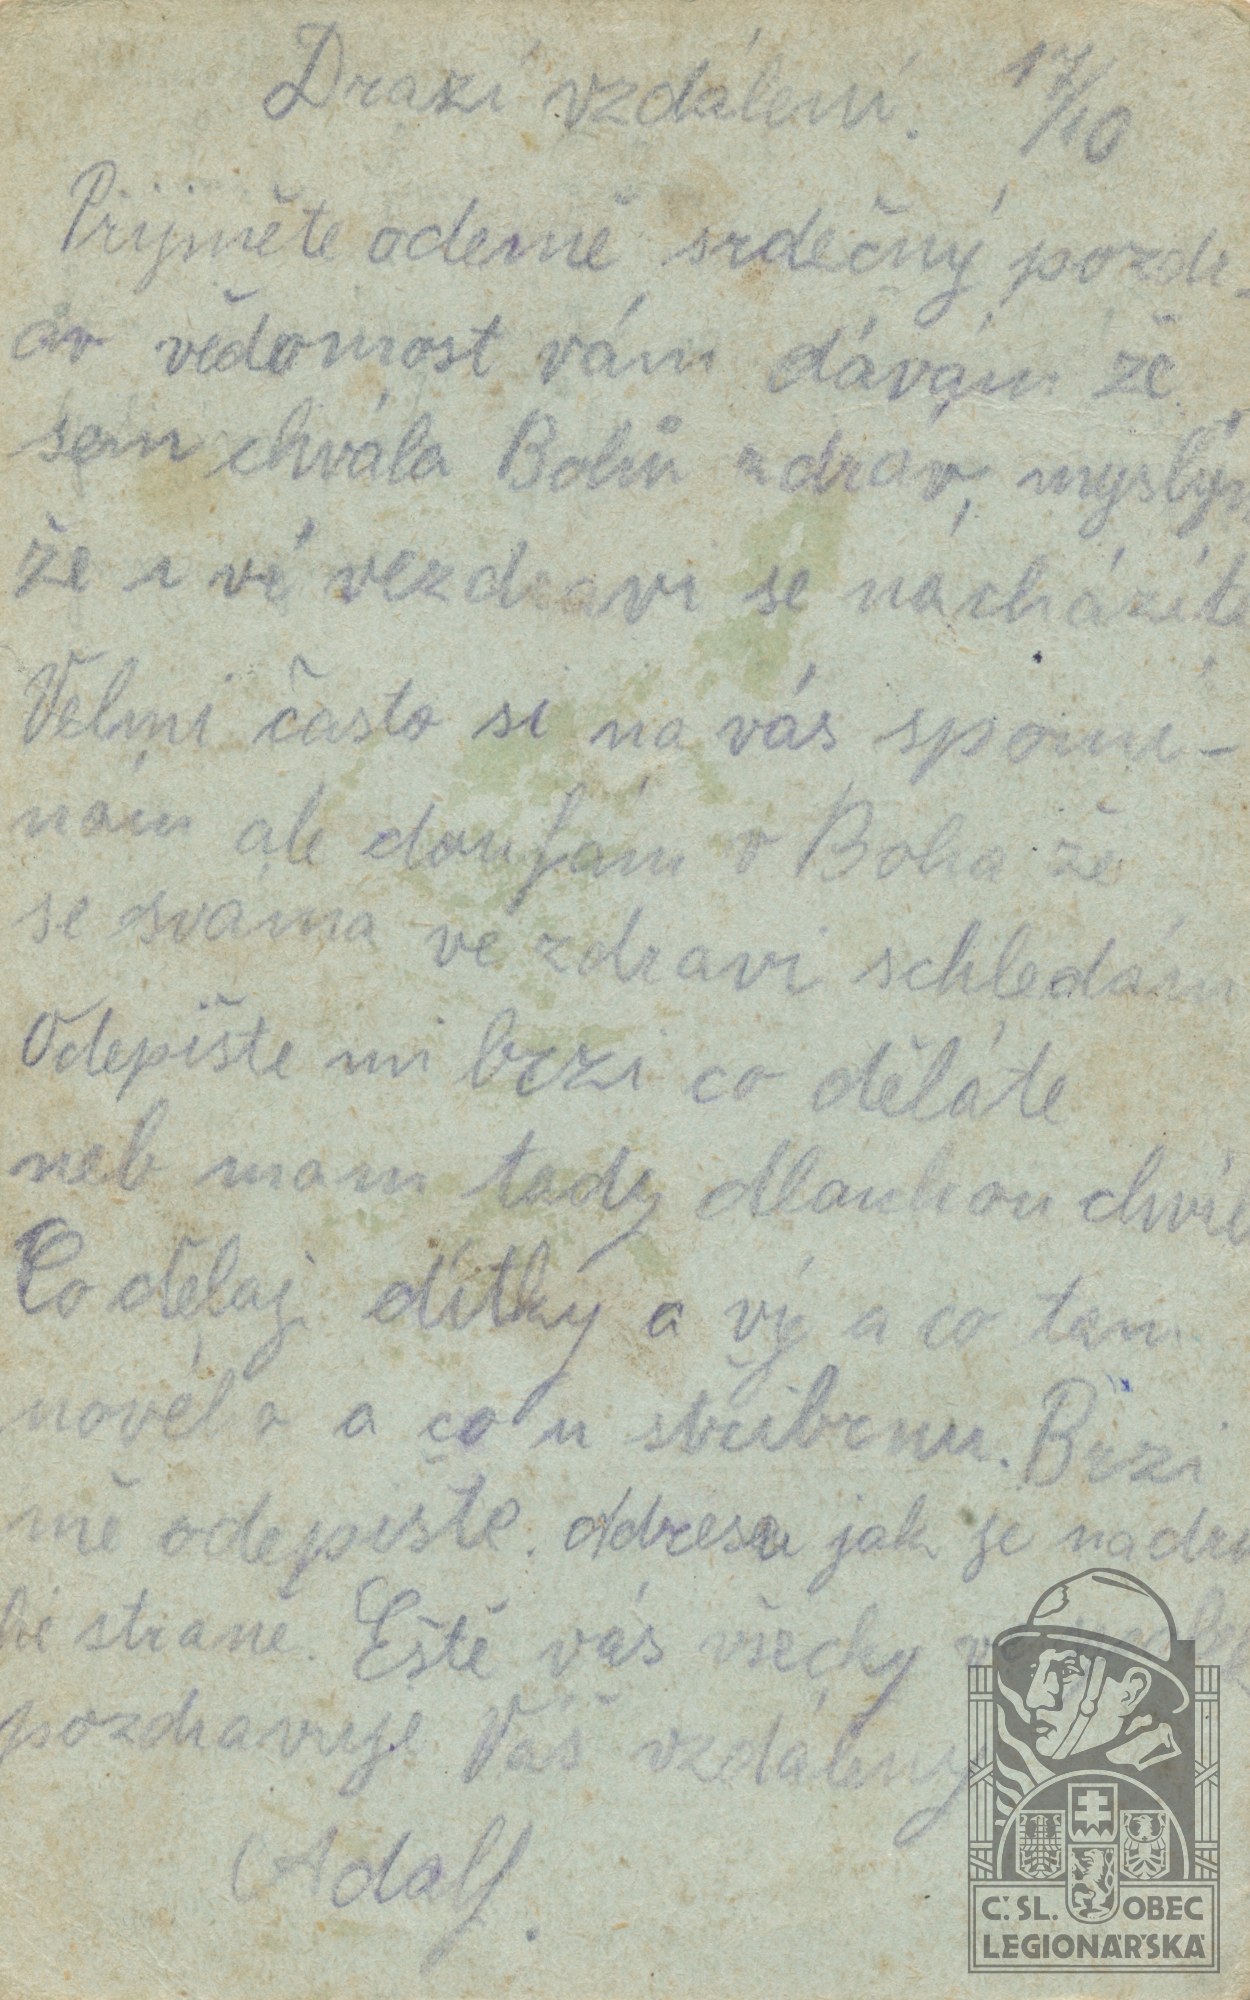 Drazí vzdálení. 17/10
Přijměte odemě srdečný pozdr-
av vědomost vám dávám že
sem chvála Bohů zdráv, myslým
že i vé vezdraví se nacházíte
Velmi často si na vás spomí-
nám ale doufám v Boha že
se sváma ve zdraví schledám
Odepište mi brzi co děláte
neb mam tady dlouhou chvíl
Co dělaj dítký a vý a co tam
novél o a co u stříbrnu. Brzi
mě odepište. Adresu jak je nadru
hé straně. Eště vás všecky
pozdravuje Váš vzdálený
Adolf.
Č.SL. OBEC
LEGIONÁŘSKÁ